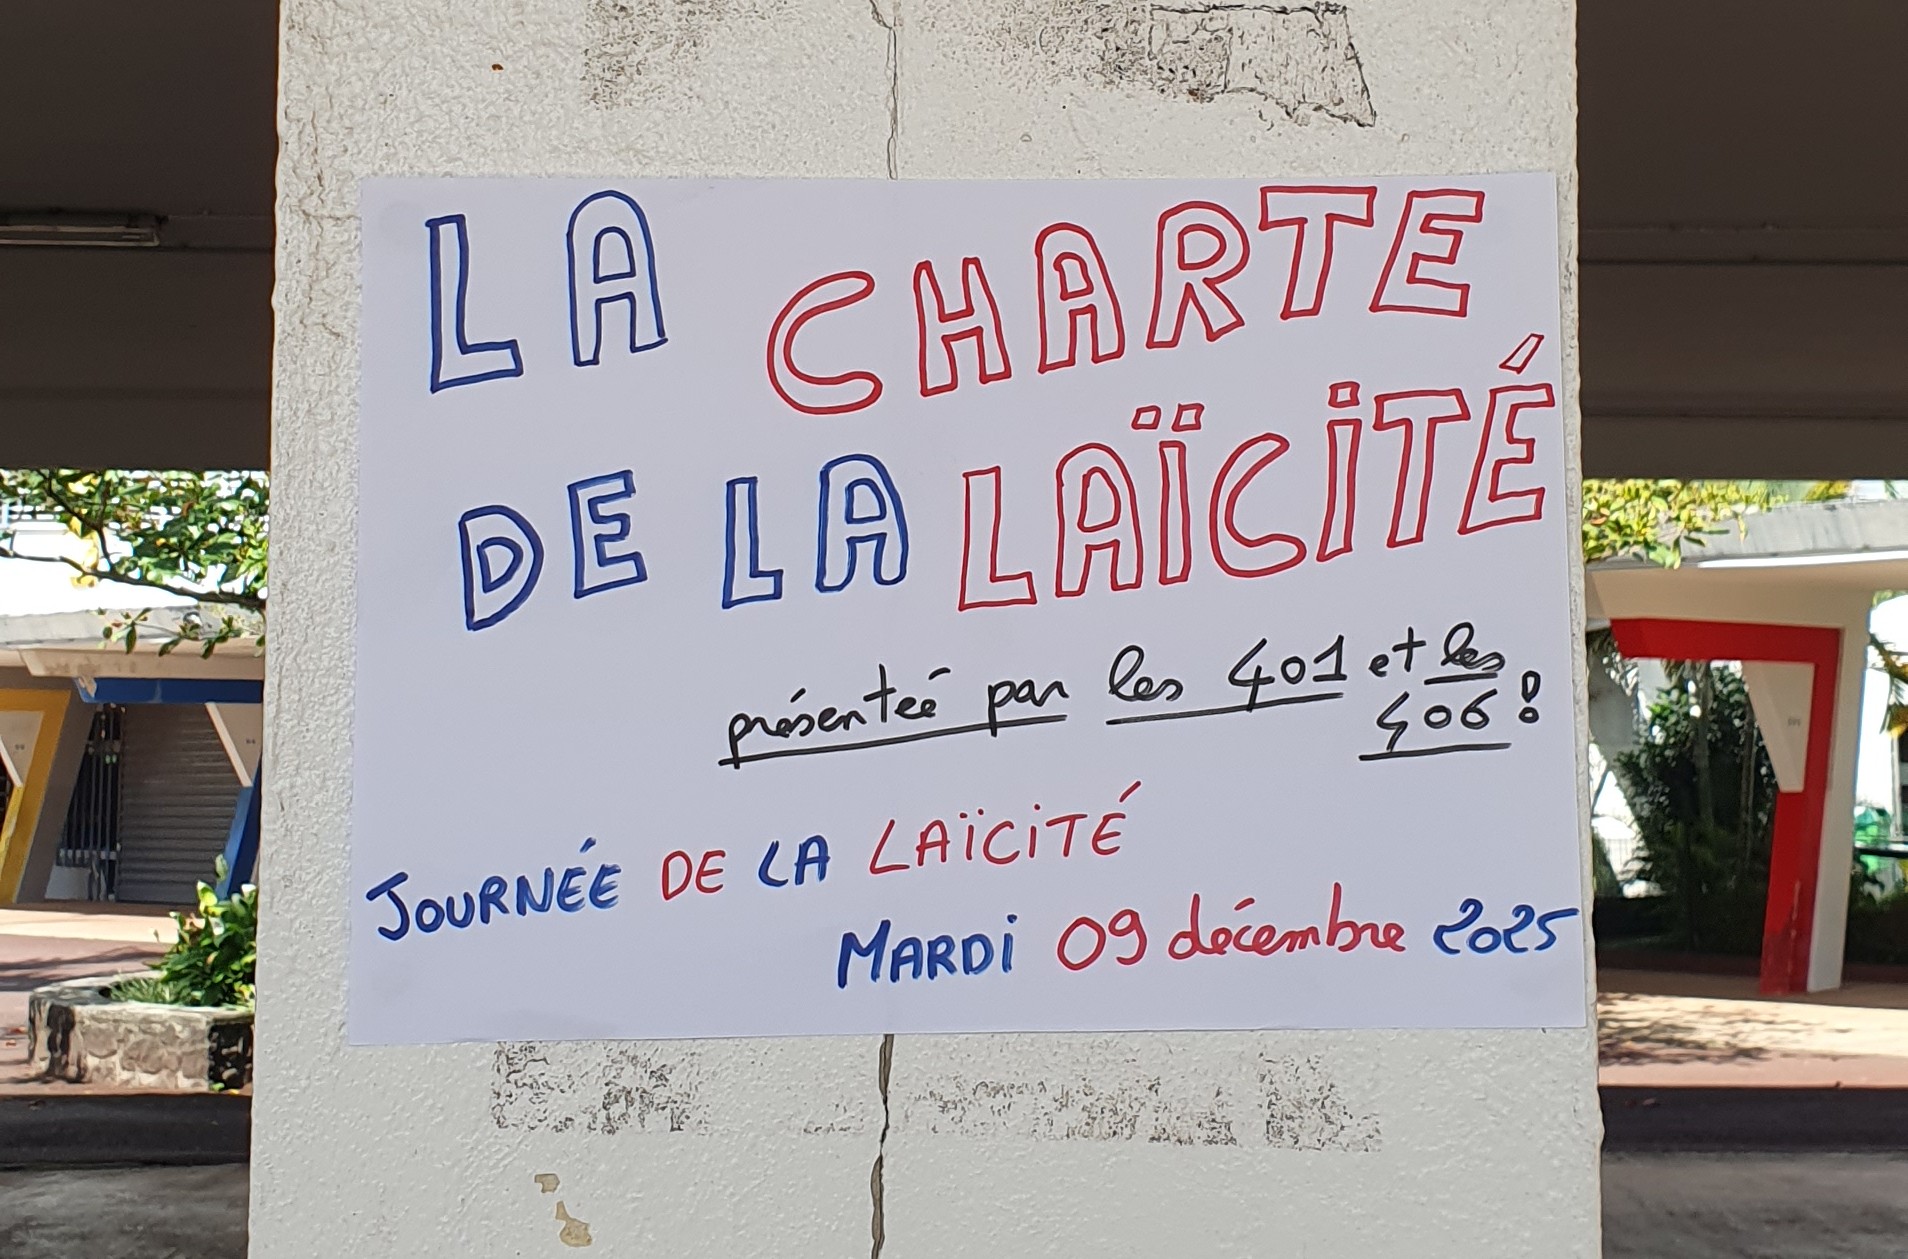 LA CHARTE
DE LA LAÏCITÉ
présenteé par les 401 et les
406!
JOURNÉE DE LA LAÏCITÉ
MARDI 09 décembre 2025